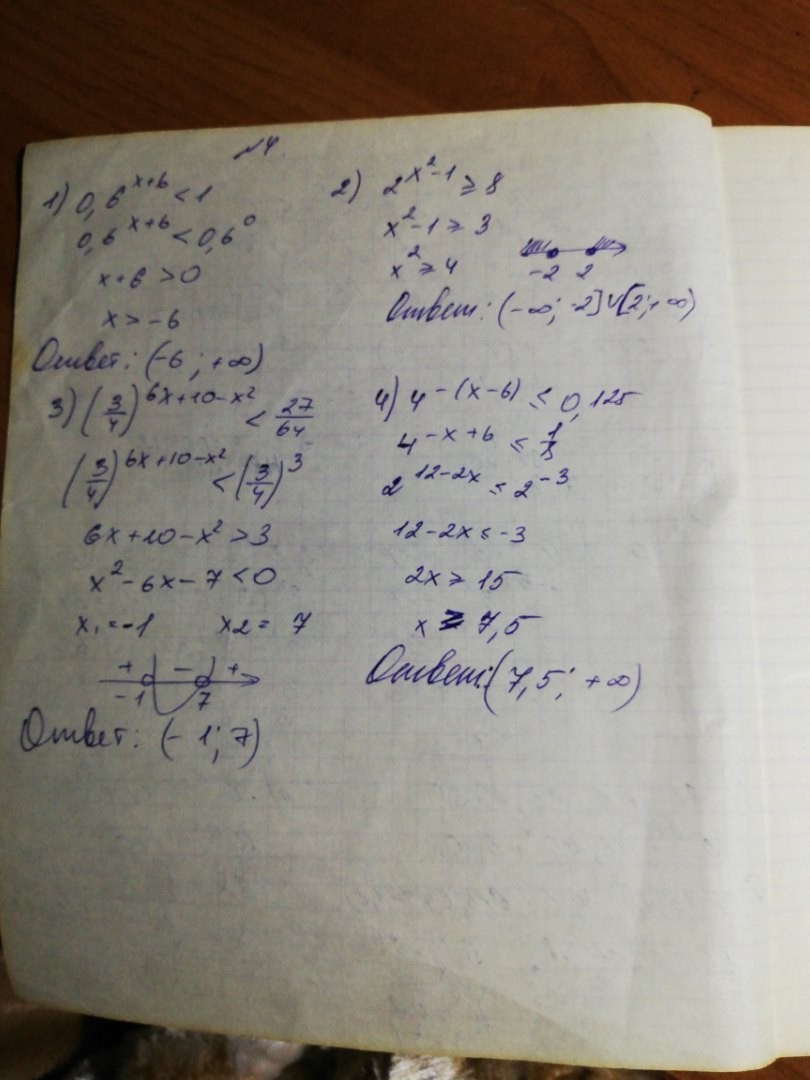 №4.
1) 0,6^{x+6} < 1
0,6^{x+6} < 0,6^0
x+6 > 0
x > -6
Ответ: (-6; +∞)
2) 2^{x^2-1} ≥ 8
x^2-1 ≥ 3
x^2 ≥ 4
-2 2
Ответ: (-∞; -2]∪[2; +∞)
3) (3/4)^{6x+10-x^2} < 27/64
(3/4)^{6x+10-x^2} < (3/4)^3
6x+10-x^2 > 3
x^2-6x-7 < 0
x1 = -1 x2 = 7
+ - +
-1 7
Ответ: (-1; 7)
4) 4^{-(x-6)} ≤ 0,125
4^{-x+6} ≤ 1/8
2^{12-2x} ≤ 2^{-3}
12-2x ≤ -3
2x ≥ 15
x ≥ 7,5
Ответ: (7,5; +∞)